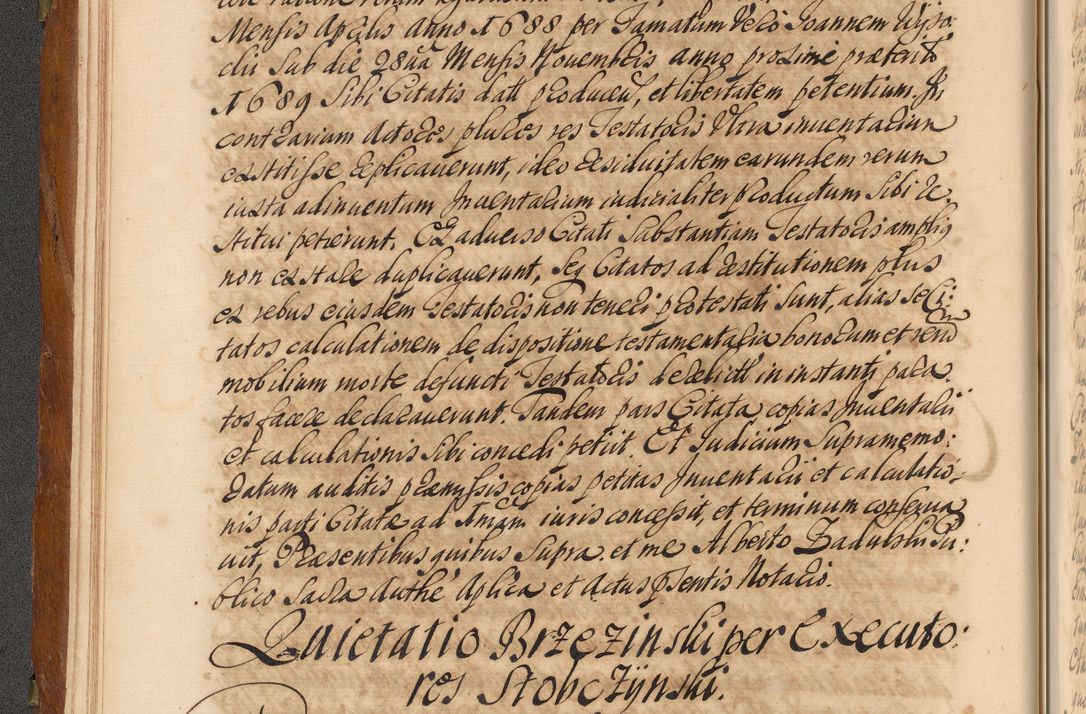 Mensis Aprilis anno 1688 per Famatum Deco Joannem Wyso:
cki sub die 28ua Mensis Nouembris anno proxime præterito
1689 sibi Citatis dati producen, et libertatem petentium. In
contrarium Actores plures res Testatoris Ultra inuentarium
exstitisse explicauerunt, ideo residuitatem earundem rerum
iuxta adinuentum Inuentarium iudicialiter productum sibi re:
stitui petierunt. Ex aduerso Citati substantiam Testatoris amplius
non exstare duplicauerunt, seq Citatos ad restitutionem plus
ex rebus eiusdem Testatoris non teneri protestati sunt, alias se Ci:
tatos calculationem de dispositione testamentaria bonorum et rerum
mobilium morte defuncti Testatoris derelict in instanti para:
tos facere declarauerunt. Tandem pars Citata copias Inuentarii
et calculationis sibi concedi petiit. Et Judicium supramemo:
ratum auditis præmyssis copias petitas Inuentarii et calculatio:
nis parti Citatæ ad iuris concessit, et terminum conserua
uit, Præsentibus quibus supra. et me Alberto Zadulski Pu:
blico Sacra Authe Aplica et Actus pñtis Notario.
Quietatio Brzezinski per Executo:
res Stobczÿnski.